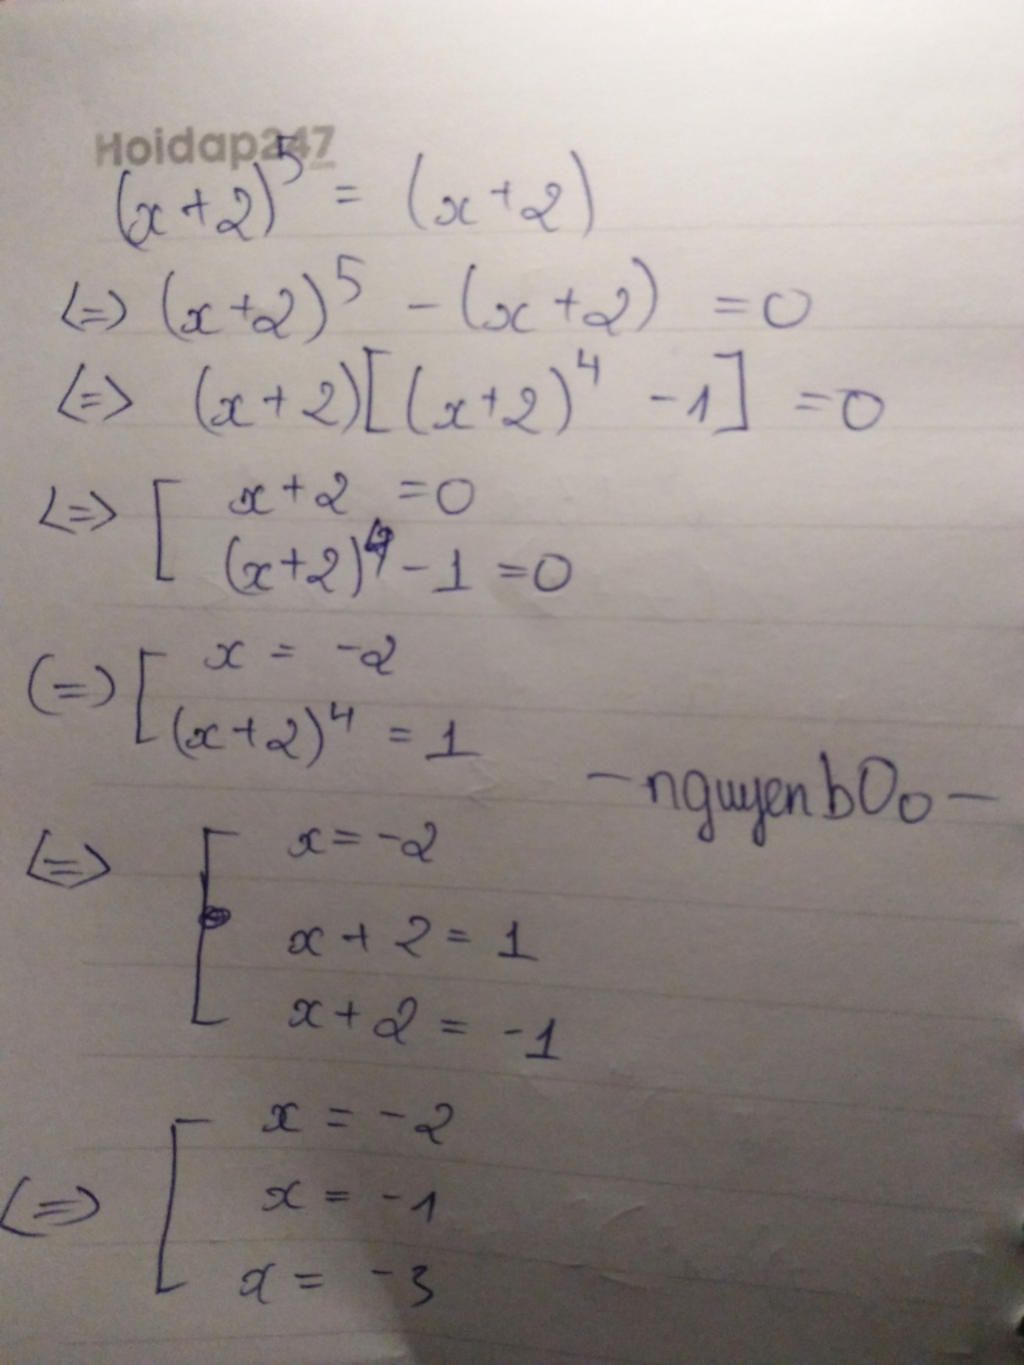 Hoidap247
(x+2)⁵ = (x+2)
<=> (x+2)⁵ - (x+2) = 0
<=> (x+2)[(x+2)⁴ - 1] = 0
<=> [ x+2 = 0
(x+2)⁴ - 1 = 0
(=) [ x = -2
(x+2)⁴ = 1
- nguyenbOo -
<=> [ x = -2
x + 2 = 1
x + 2 = -1
<=> [ x = -2
x = -1
x = -3